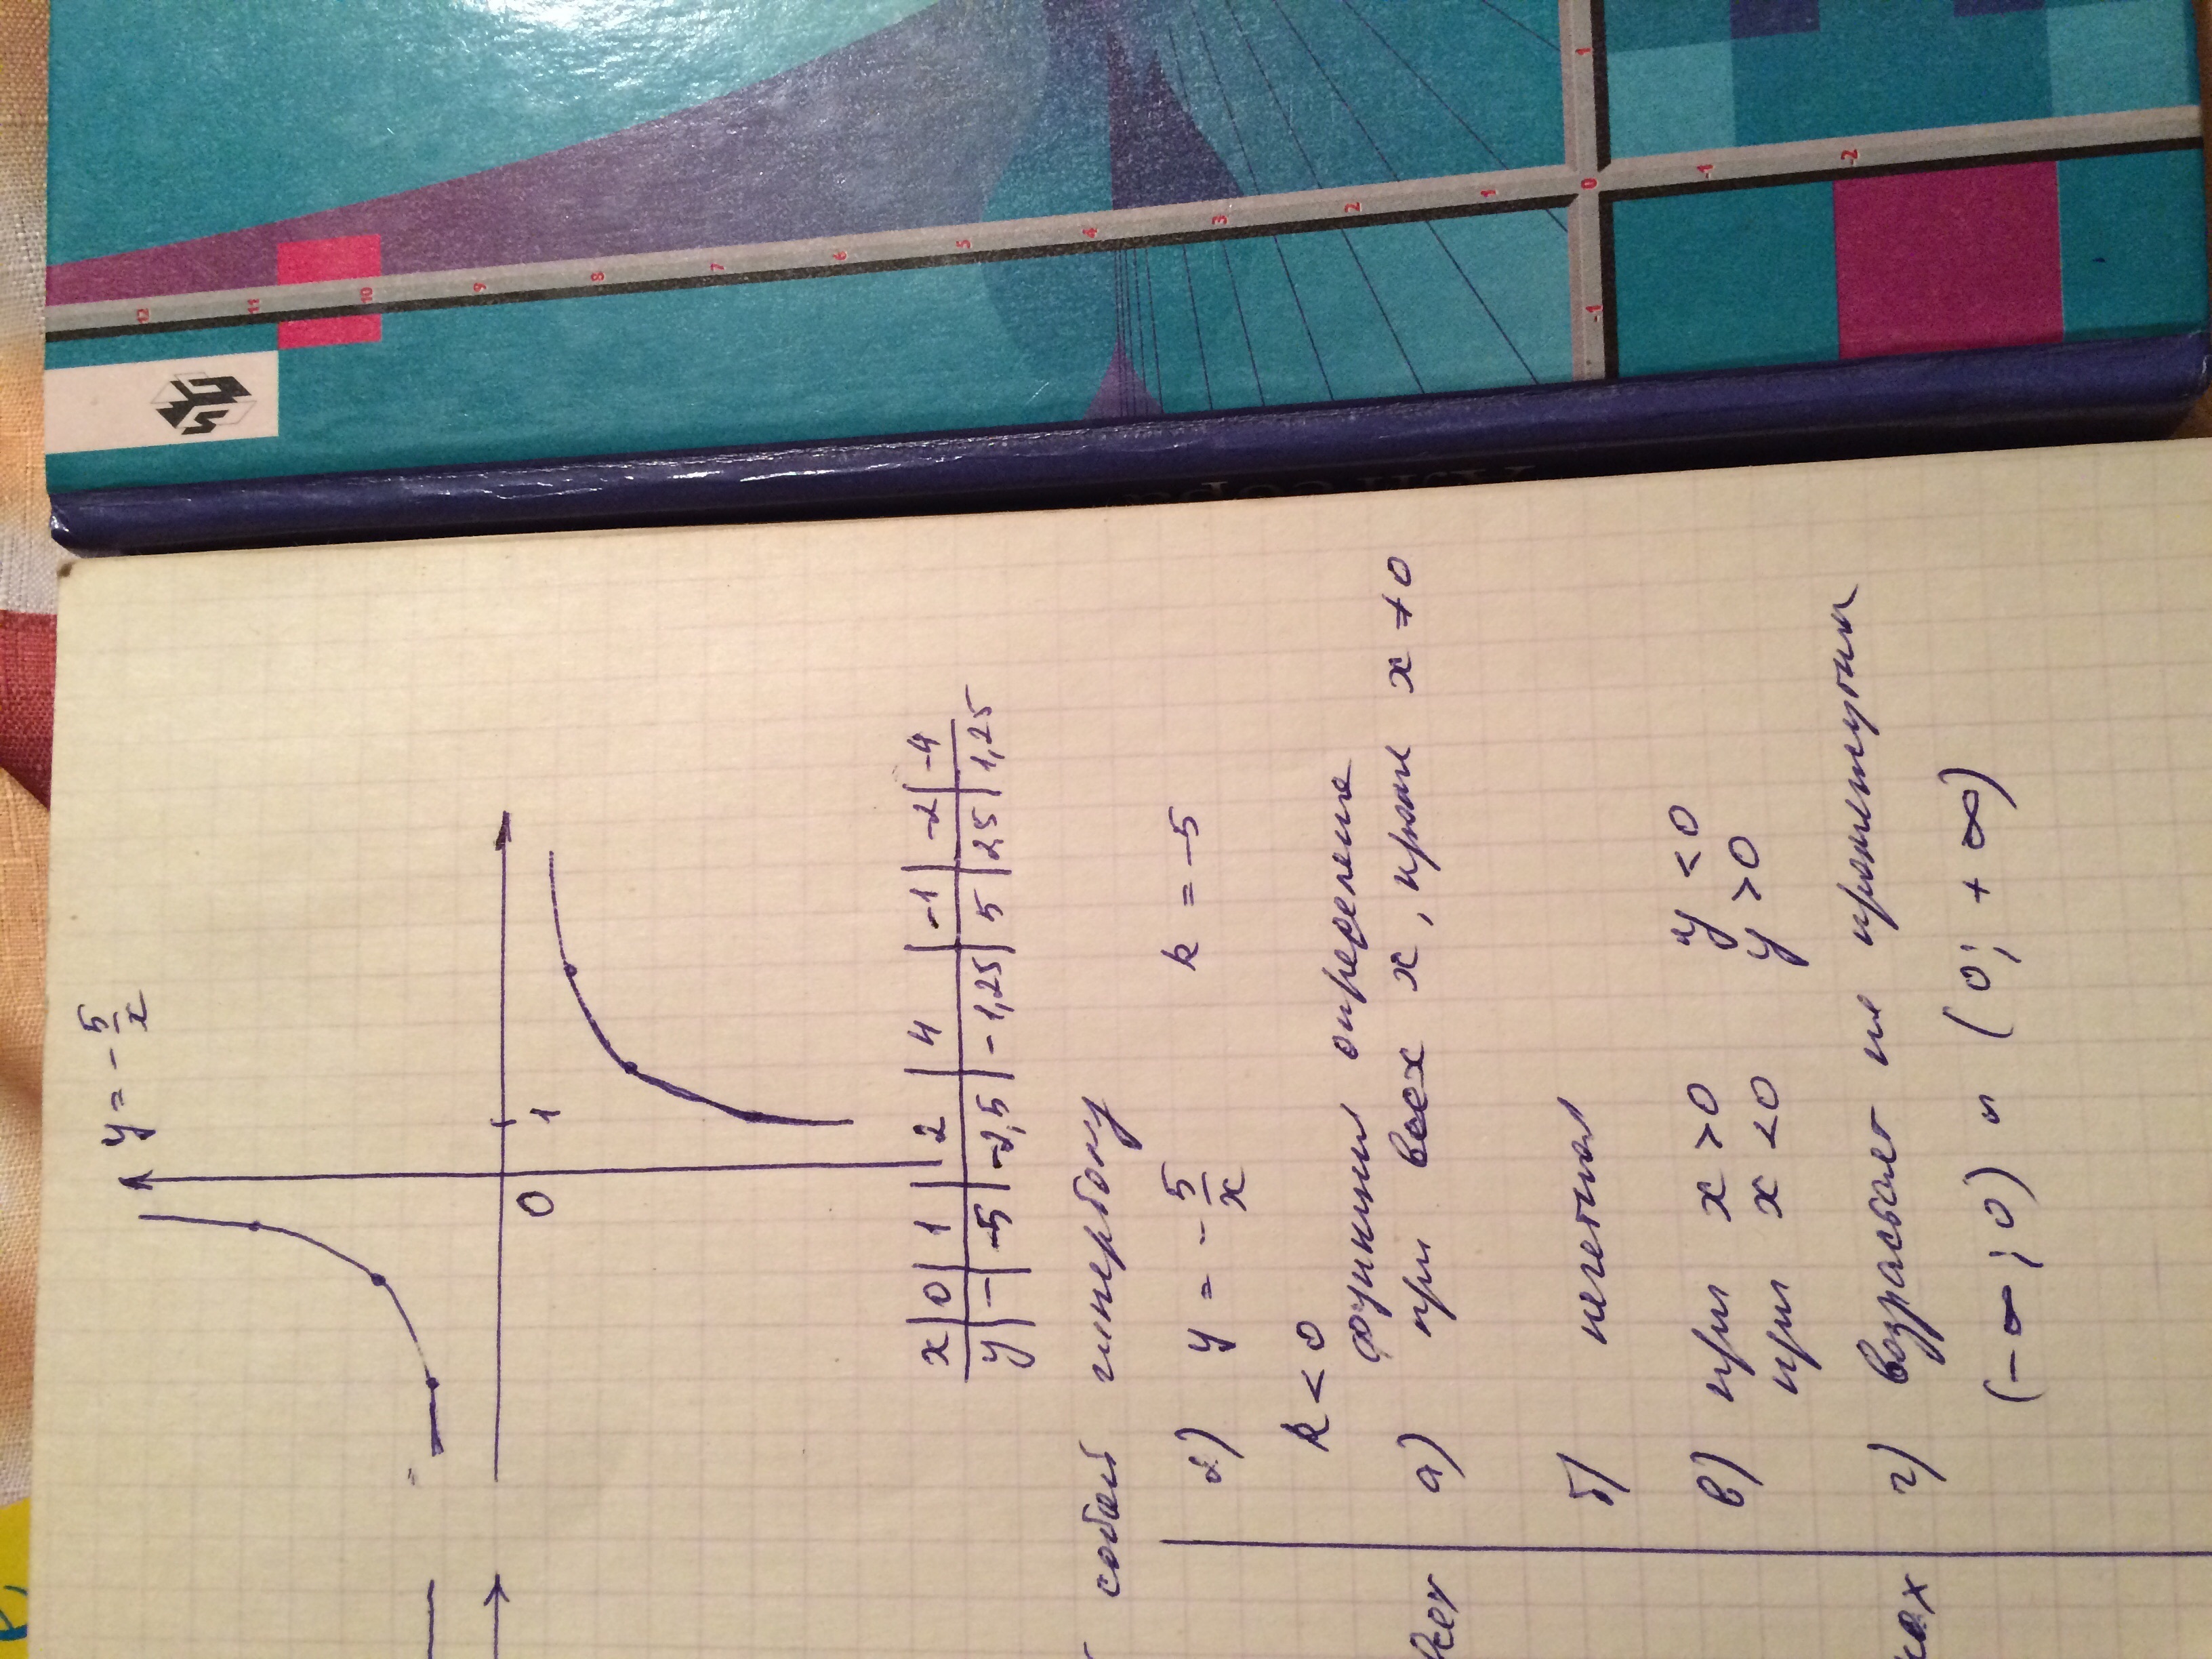 y = - 5/x
0 1
x | 0 | 1 | 2 | 4 | -1 | -2 | -4
y | - | -5 | -2,5 | -1,25 | 5 | 25 | 1,25
собой гиперболу
2) y = - 5/x k = -5
k < 0
а) функции определене
при всех x, кроме x ≠ 0
б) нечетная
в) при x > 0 y < 0
при x < 0 y > 0
г) возрасвает на промежутки
(-∞; 0) и (0; +∞)
12 11 10 9 8 7 6 5 4 3 2 1 0 -1 -2
1
-1